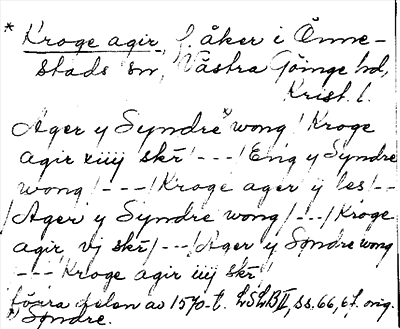 * Kroge agir, f. åker i Önne-
stads sn, Västra Göinge hd,
Krist. l.
Ager y Syndre* wong / Kroge
agir xiiij skr / - - - / Eng y Syndre
wong / - - - / Kroge ager ij les / - -
/ Ager y Syndre wong / - - - / Kroge
agir vj skr / - - - / Ager y Søndre wong
- - - Kroge agir iiij skr
förra delen av 1570-t. LSLB II, ss. 66, 67. orig.
* Søndre.